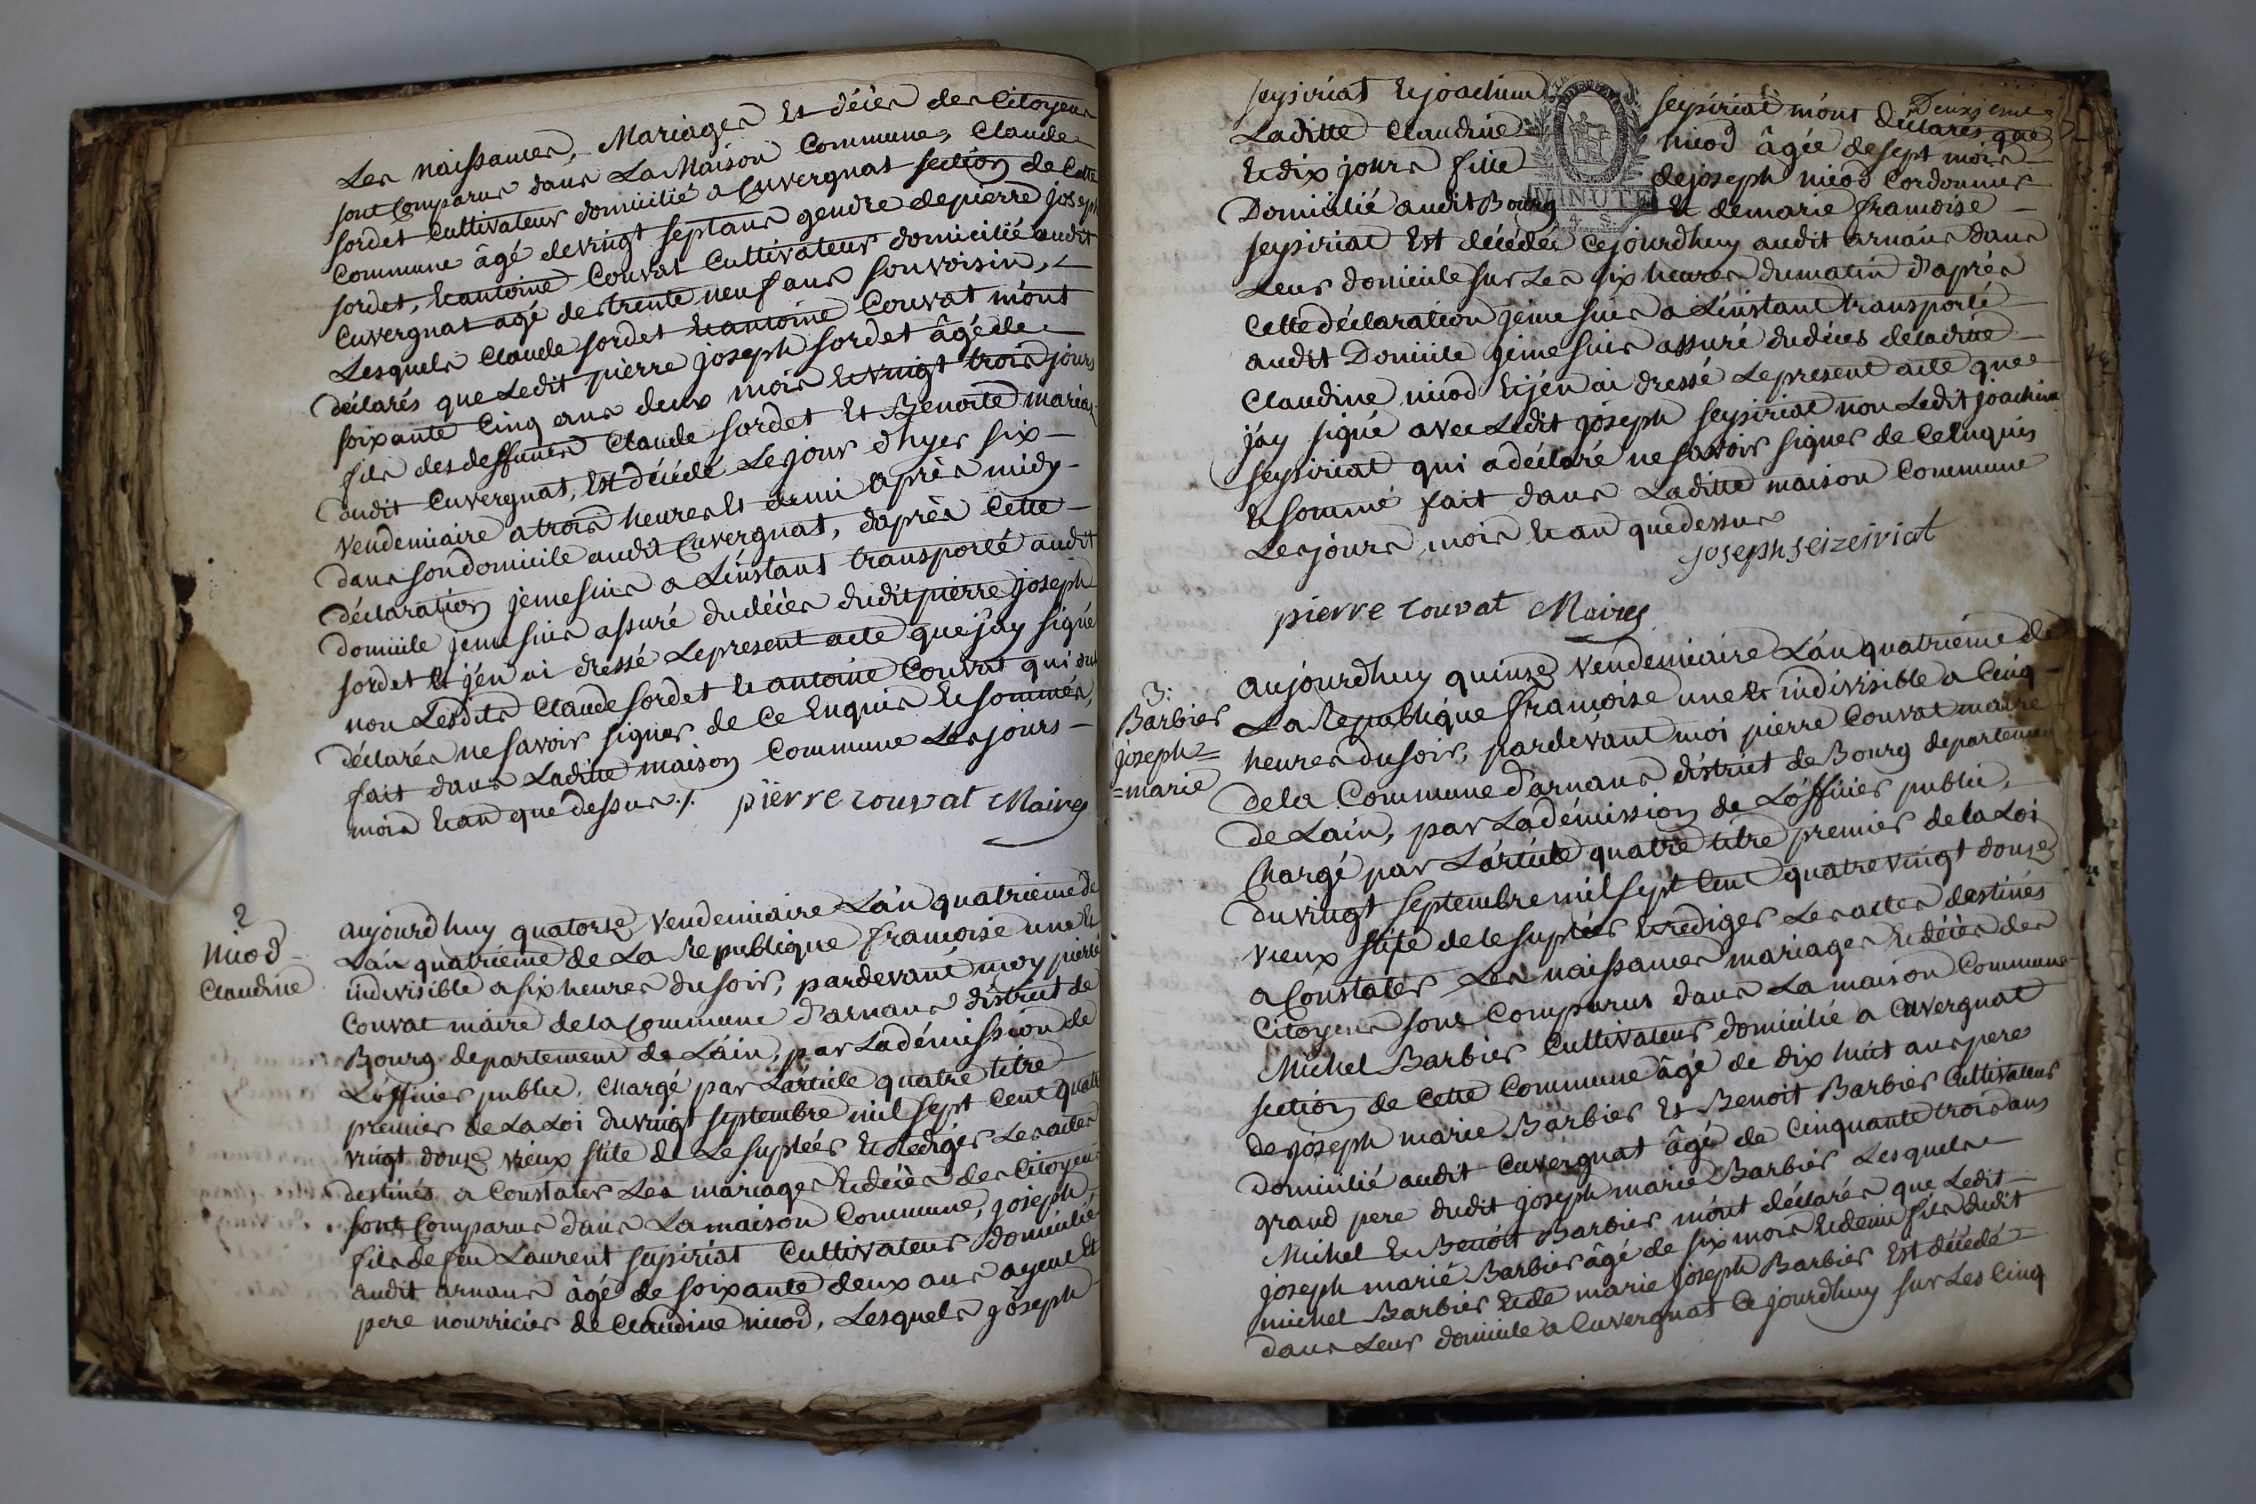 Les naissances, Mariages Et décès des Citoyens
sont Comparus dans La Maison Commune, Claude
sordet Cultivateur domicilié a Cuvergnat section de Cette
Commune âgé de vingt sept ans gendre de pierre joseph
sordet, Et antoine Couvat Cultivateur domicilié audit
Cuvergnat agé de trente neuf ans son voisin,
Lesquels Claude sordet Et antoine Couvat m'ont
déclarés que Ledit pierre joseph sordet âgé de
soixante Cinq ans deux mois Et vingt trois jours
fils des deffunts Claude sordet Et Benoite
audit Cuvergnat, Est décédé Le jour d'hyer six
Vendemiaire a trois heures Et demi après midy
dans son domicile audit Cuvergnat, d'après Cette
déclaration je me suis a L'instant transporté audit
domicile je me suis assuré du décès dudit pierre joseph
sordet Et j'en ai dressé Le present acte que j'ay signé
non Lesdits Claude sordet Et antoine Couvat qui ont
déclarés ne savoir signer de Ce Enquis Et sommés,
fait dans Laditte maison Commune Les jours
mois Et an que dessus ./. pierre couvat Maire
2
niod
Claudine
aujourd'huy quatorze Vendemiaire L'an quatrieme de
L'an quatrieme de La Republique françoise une Et
indivisible a six heures du soir, pardevant moy pierre
Couvat maire de la Commune d'arnans district de
Bourg departement de L'ain, par La démission de
L'officier public, Chargé par L'article quatre titre
premier de La Loi du vingt septembre mil sept Cent quatre
vingt douze vieux stile de Le supléer Et Rediger Les actes
destinés a Constater Les mariages Et décès des Citoyens
sont Comparus dans La maison Commune, joseph
fils de feu Laurent sepiriat Cultivateur domicilié
audit arnans âgé de soixante deux ans ayeul Et
pere nourricier de Claudine niod, Lesquels joseph
Deuxieme
seysiriat Et joachim seysiriat m'ont déclarés que
Laditte Claudine niod âgée de sept mois
Et dix jours fille de joseph niod Cordonnier
MINUTE
4. S.
Domicilié audit Bourg Et de marie françoise
seysiriat Est décédée Cejourd'huy audit arnans dans
Leur domicile sur Les six heures du matin d'après
Cette déclaration je me suis a L'instant transporté
audit Domicile je me suis assuré du décès de laditte
Claudine niod Et j'en ai dressé Le present acte que
j'ay signé avec Ledit joseph seysiriat non Ledit joachim
seysiriat qui a déclaré ne savoir signer de Ce Enquis
Et sommé fait dans Laditte maison Commune
Les jours mois Et an que dessus
joseph seizeiriat
pierre couvat Maire
3.
Barbier
joseph=
=marie
aujourd'huy quinze Vendemiaire L'an quatrième de
La Republique françoise une Et indivisible a Cinq
heures du soir, pardevant moi pierre Couvat maire
de la Commune d'arnans district de Bourg departement
de Lain, par La démission de L'officier public,
Chargé par L'article quatre titre premier de la Loi
du vingt septembre mil sept Cent quatre vingt douze
vieux stile de le supléer Et rediger Les actes destinés
a Constater Les naissances mariages Et décès des
Citoyens sont Comparus dans La maison Commune
Michel Barbier Cultivateur domicilié a Cuvergnat
section de Cette Commune âgé de dix huit ans pere
de joseph marie Barbier Et Benoit Barbier Cultivateur
domicilié audit Cuvergnat âgé de Cinquante trois ans
grand pere dudit joseph marie Barbier Lesquels
Michel Et Benoit Barbier m'ont déclarés que Ledit
joseph marie Barbier âgé de six mois Et demi fils dudit
michel Barbier Et de marie joseph Barbier Est décédé
dans Leur domicile a Cuvergnat Ce jourd'huy sur Les Cinq